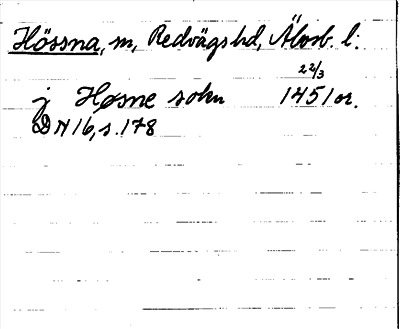 Hössna, sn, Redvägs hd, Älvsb. l.
22/3
j Høsne sokn 1451 or.
DN 16, s. 178